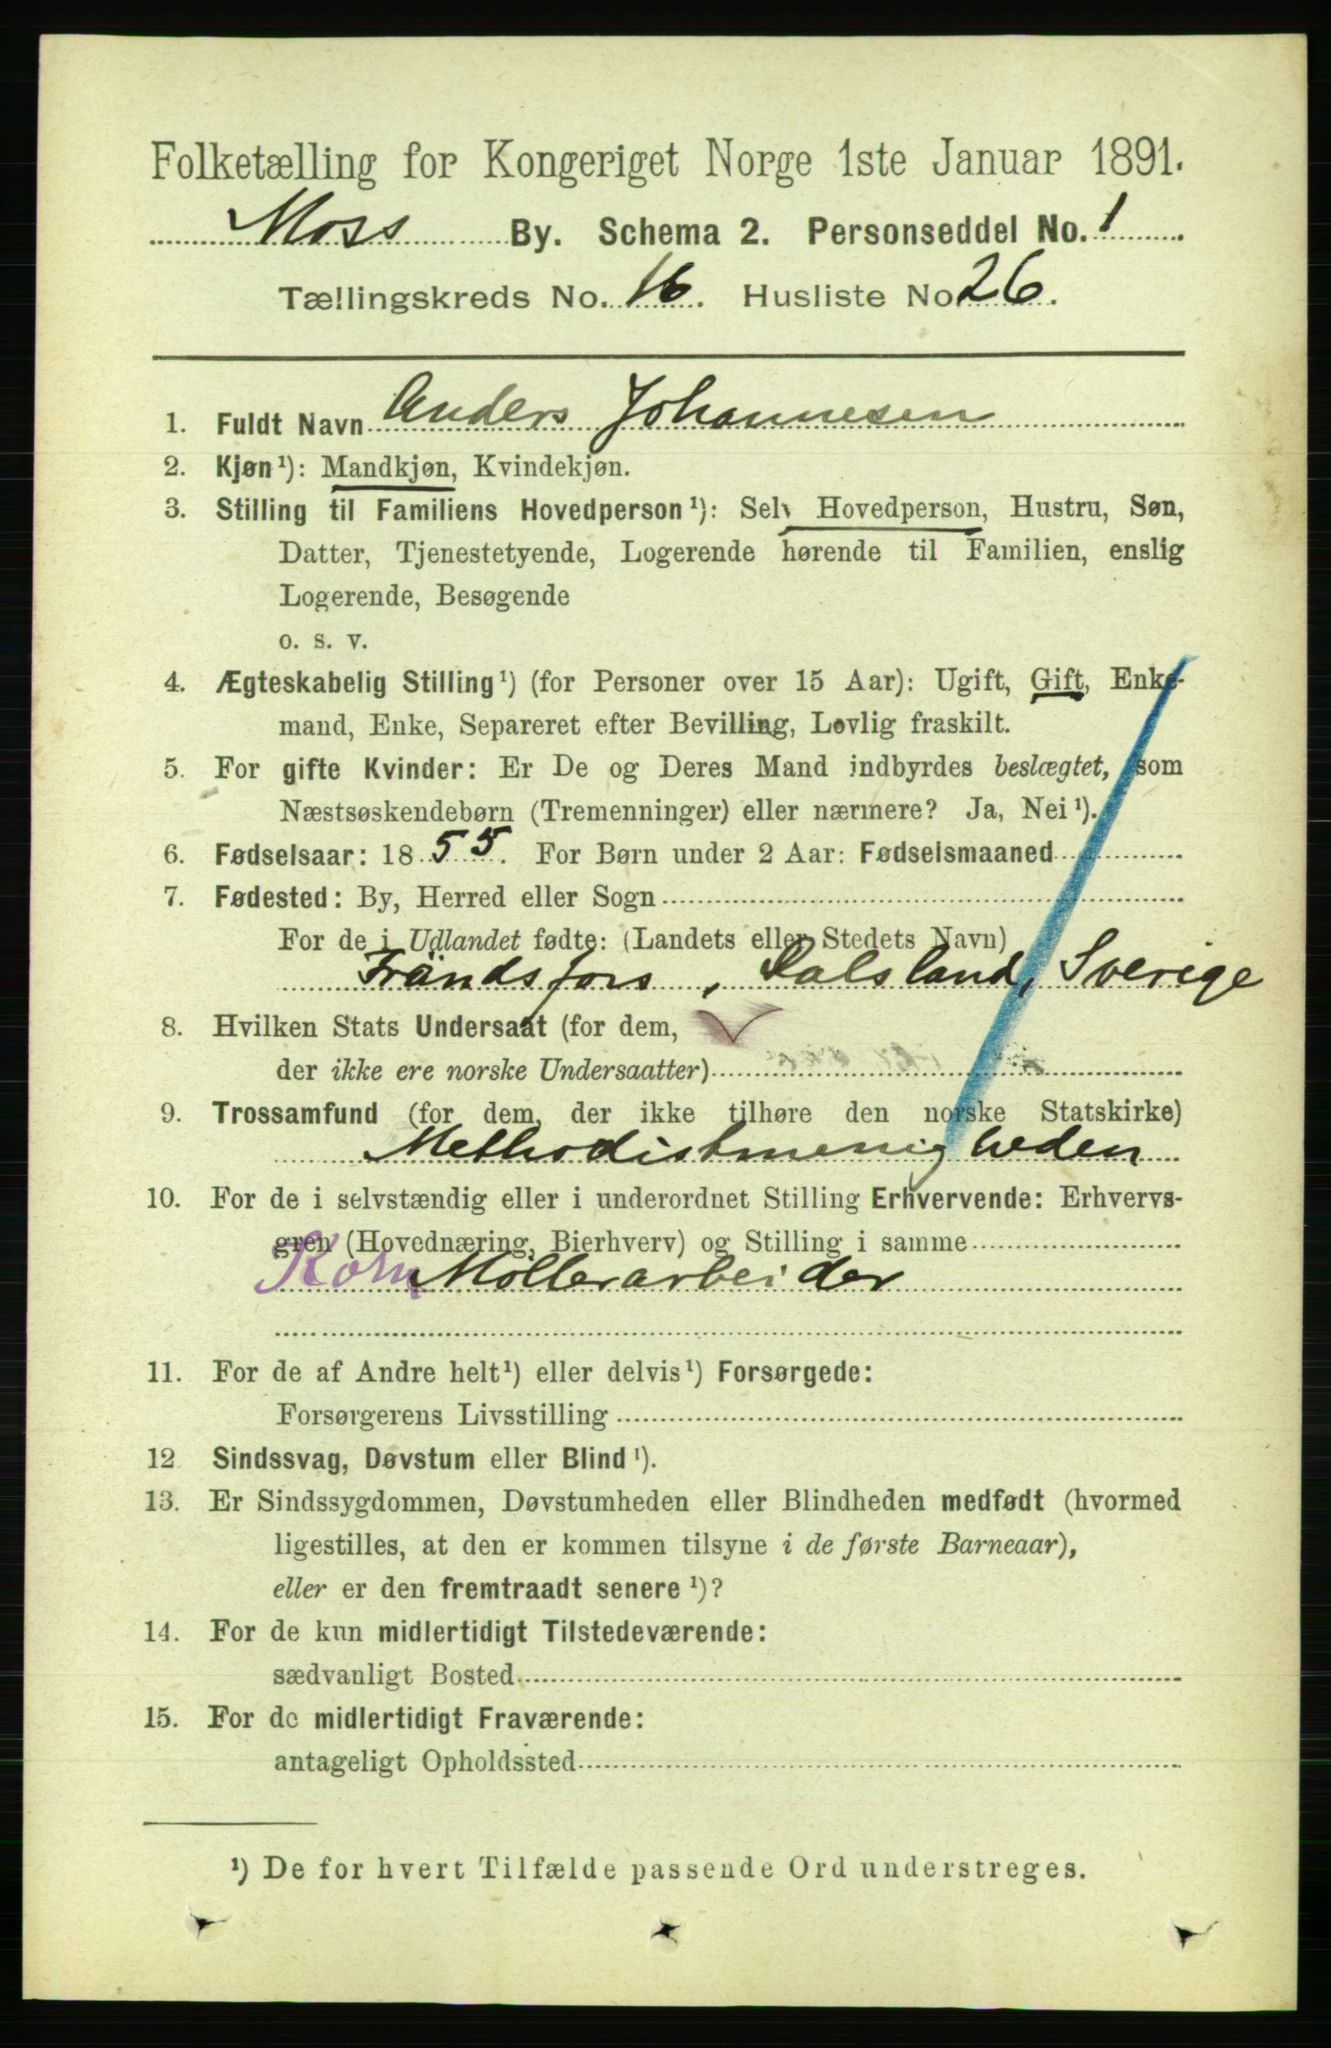 Folketælling for Kongeriget Norge 1ste Januar 1891.
Moss By. Schema 2. Personseddel No. 1
Tællingskreds No. 16. Husliste No 26.
1. Fuldt Navn Anders Johannesen
2. Kjøn¹): Mandkjøn, Kvindekjøn.
3. Stilling til Familiens Hovedperson¹): Selv Hovedperson, Hustru, Søn,
Datter, Tjenestetyende, Logerende hørende til Familien, enslig
Logerende, Besøgende
o. s. v.
4. Ægteskabelig Stilling¹) (for Personer over 15 Aar): Ugift, Gift, Enke-
mand, Enke, Separeret efter Bevilling, Lovlig fraskilt.
5. For gifte Kvinder: Er De og Deres Mand indbyrdes beslægtet, som
Næstsøskendebørn (Tremenninger) eller nærmere? Ja, Nei¹).
6. Fødselsaar: 1855. For Børn under 2 Aar: Fødselsmaaned
7. Fødested: By, Herred eller Sogn
For de i Udlandet fødte: (Landets eller Stedets Navn)
Frändsfors, Dalsland, Sverige
8. Hvilken Stats Undersaat (for dem,
der ikke ere norske Undersaatter)
9. Trossamfund (for dem, der ikke tilhøre den norske Statskirke)
Methodistmenigheden
10. For de i selvstændig eller i underordnet Stilling Erhvervende: Erhvervs-
gren (Hovednæring, Bierhverv) og Stilling i samme
Korn Möllerarbeider
11. For de af Andre helt¹) eller delvis¹) Forsørgede:
Forsørgerens Livsstilling
12 Sindssvag, Døvstum eller Blind¹).
13. Er Sindssygdommen, Døvstumheden eller Blindheden medfødt (hvormed
ligestilles, at den er kommen tilsyne i de første Barneaar),
eller er den fremtraadt senere¹)?
14. For de kun midlertidigt Tilstedeværende:
sædvanligt Bosted
15. For de midlertidigt Fraværende:
antageligt Opholdssted
¹) De for hvert Tilfælde passende Ord understreges.